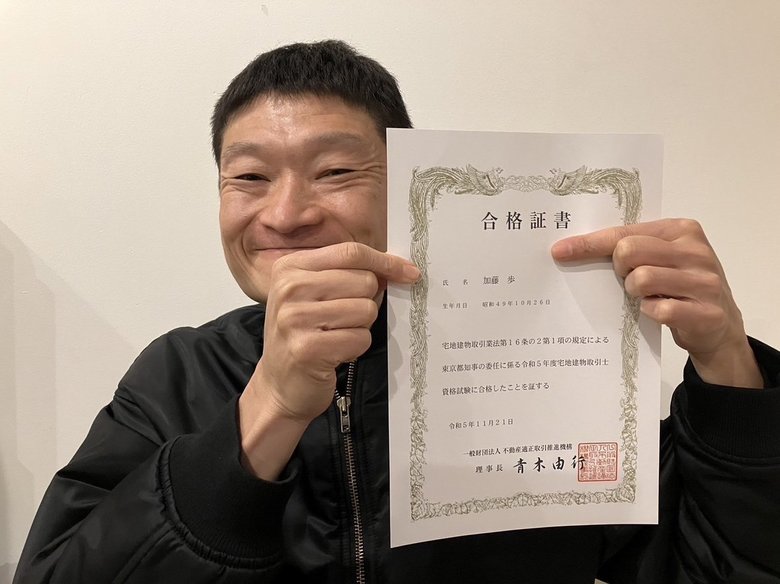 合格証書
氏名 加藤 歩
生年月日 昭和49年10月26日
宅地建物取引業法第16条の2第1項の規定による
東京都知事の委任に係る令和5年度宅地建物取引士
資格試験に合格したことを証する
令和5年11月21日
一般財団法人 不動産適正取引推進機構
理事長 青木由行